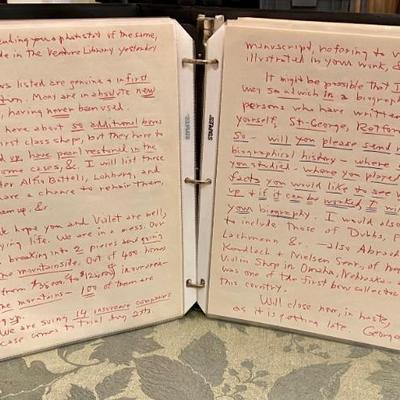 sending you a photostat of the same,
made in the Venture Library yesterday
bows listed are genuine & in first
Many are in absolute new
having never been used.
I have about 50 additional bows
first class shape, but they have to
have pearl restored in the
some cases, & I will list those
after Alfio Batteli, Lohberg, and
have a chance to rehair them,
them up, &.
hope you and Violet are well,
enjoying life. We are in a mess. Our
is breaking into 2 pieces and going
the mountainside. Out of 400 homes
from $75000 to $125000
the mountains - 100 of them are
going up.
We are suing 14 insurance companies
case comes to trial Aug 27th
STAPLES
STAPLES
manuscript, referring to
illustrated in your work,
It might be possible that I
may sandwich in a biography
persons who have written
yourself, St-George, Retford
So - will you please send me
biographical history - where
you studied - where you played
facts you would like to see
up & if it can be worked, I will
your biography. I would also
to include those of Dubbs,
Lachmann &. - also Abraham
Kandlach & Nielsen Sear, of
Violin Shop in Omaha, Nebraska -
was one of the first bow collectors
this country.
Will close now, in haste,
as it is getting late.
George